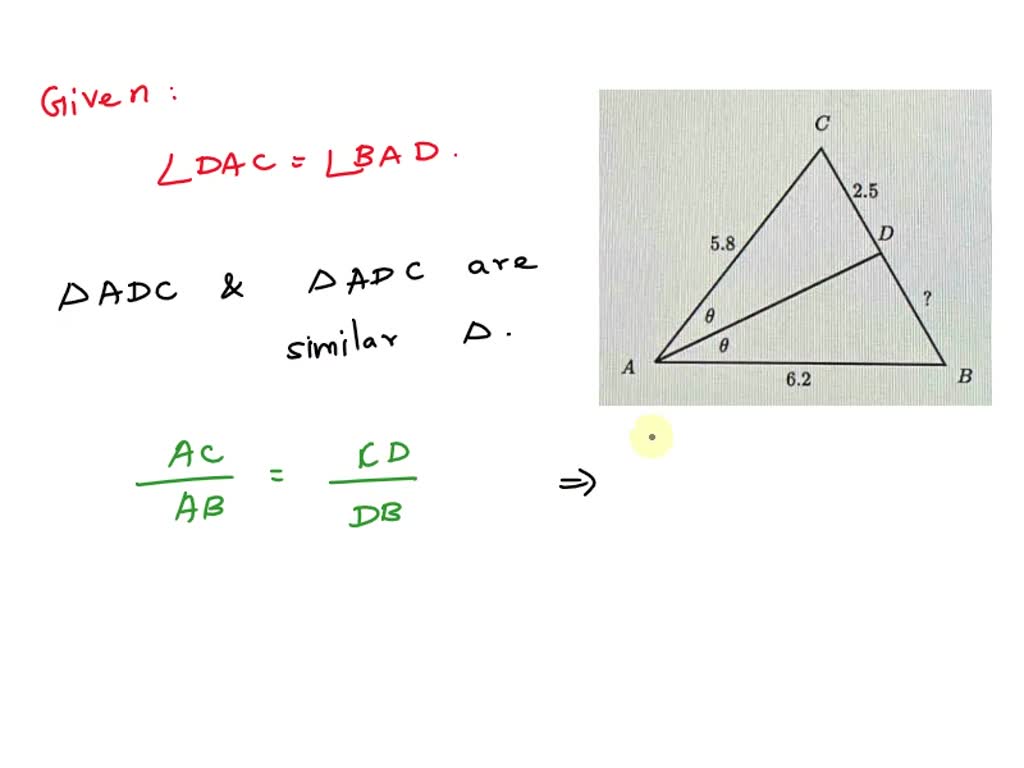 Given :
∠DAC = ∠BAD.
△ADC & △ADC are
similar △.
AC / AB = CD / DB ⇒
C
2.5
D
5.8
?
θ
θ
A
6.2
B